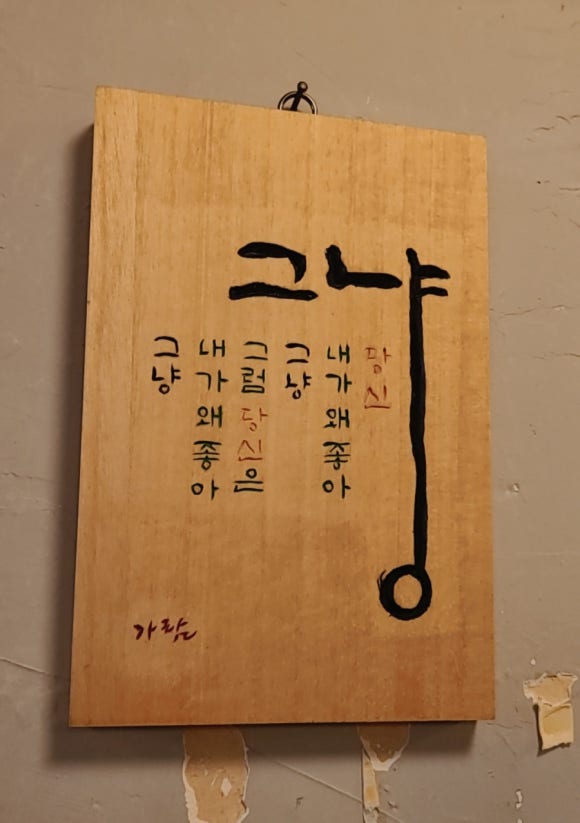 그냥
당신
내가왜좋아
그냥
그럼당신은
내가왜좋아
그냥
가람